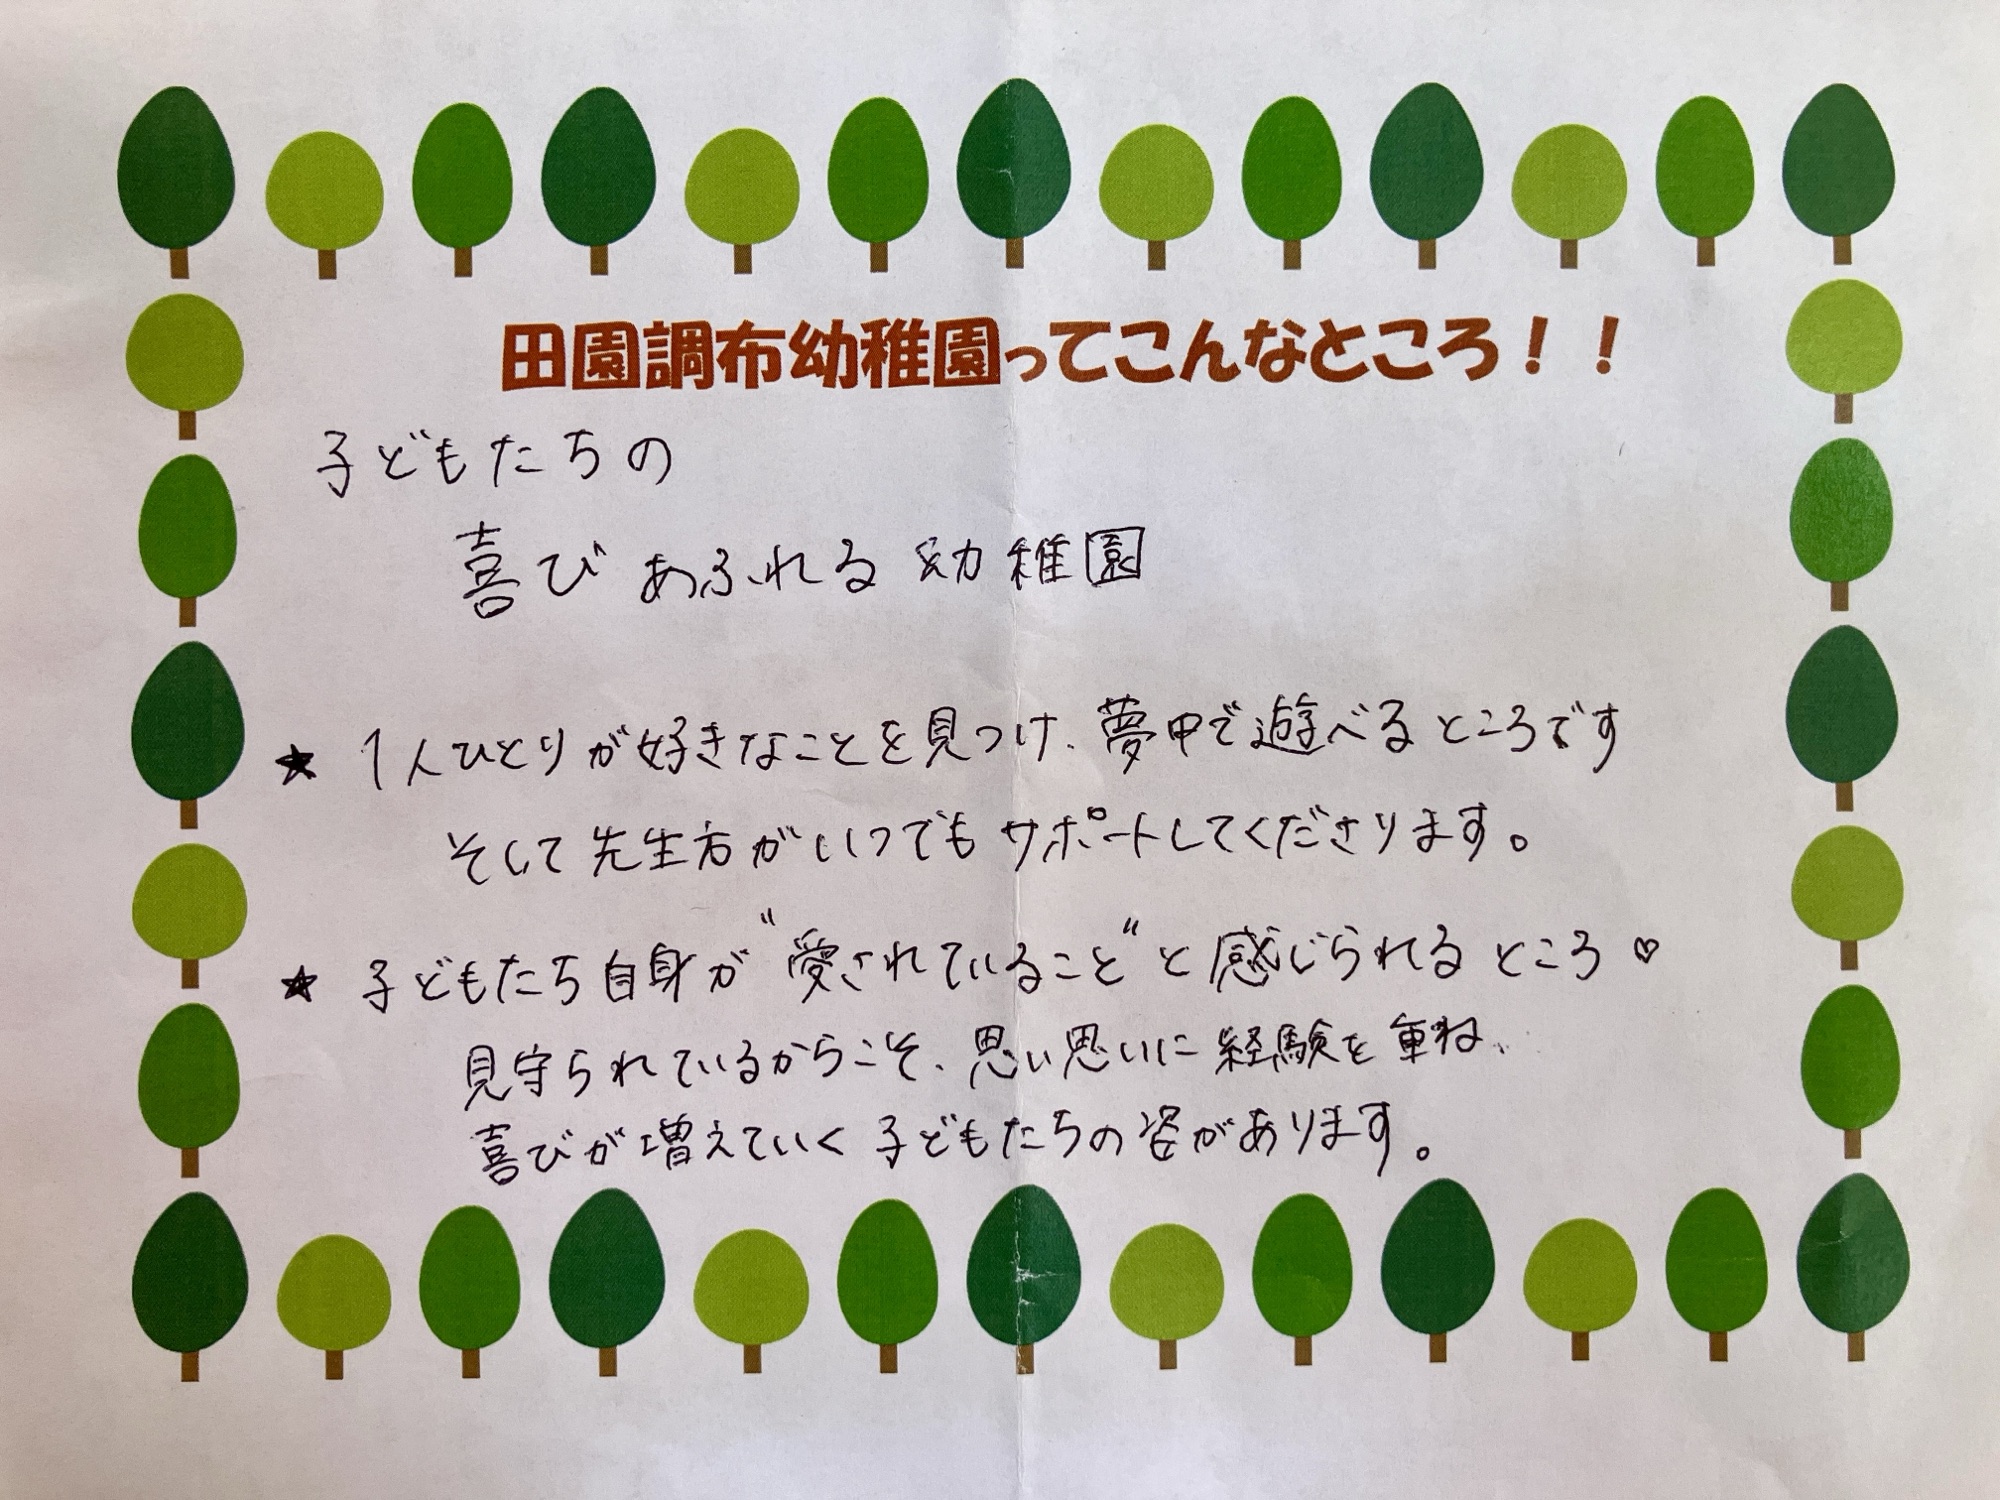 田園調布幼稚園ってこんなところ！！
子どもたちの
喜びあふれる幼稚園
★ 1人ひとりが好きなことを見つけ、夢中で遊べるところです
そして先生方がいつでもサポートしてくださります。
★ 子どもたち自身が"愛されていること"と感じられるところ♡
見守られているからこそ、思い思いに経験を重ね、
喜びが増えていく子どもたちの姿があります。